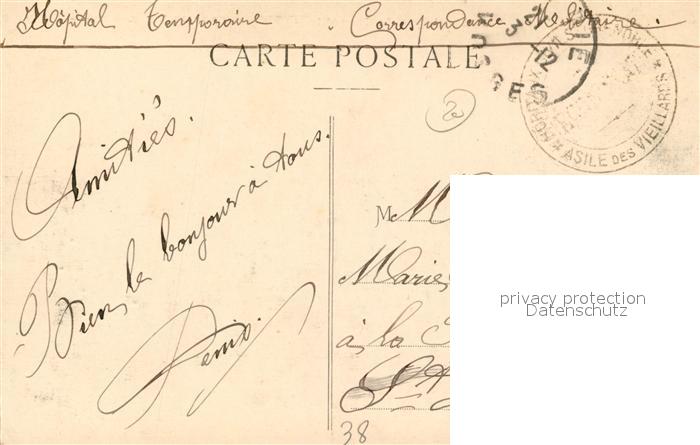 Hôpital Temporaire . Correspondance Militaire .
CARTE POSTALE
3 -12
ASILE DES VIEILLARDS
20
Amitiés.
Bien le bonjour à tous.
Denis.
M M
Marie
à la
St
38
privacy protection
Datenschutz